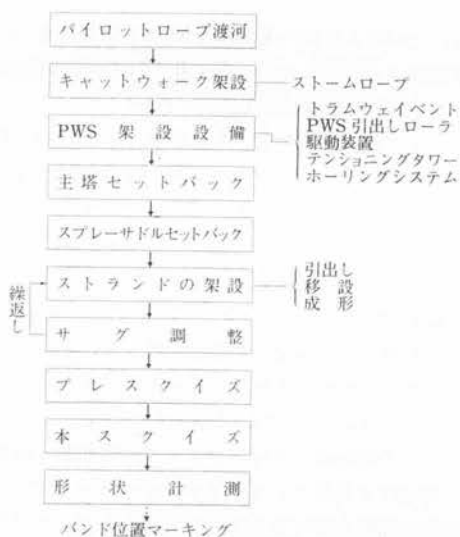 パイロットロープ渡河
キャットウォーク架設
ストームロープ
PWS架設設備
トラムウェイベント
PWS引出しローラ
駆動装置
テンショニングタワー
ホーリングシステム
主塔セットバック
スプレーサドルセットバック
繰返し
ストランドの架設
引出し
移設
成形
サグ調整
プレスクイズ
本スクイズ
形状計測
バンド位置マーキング